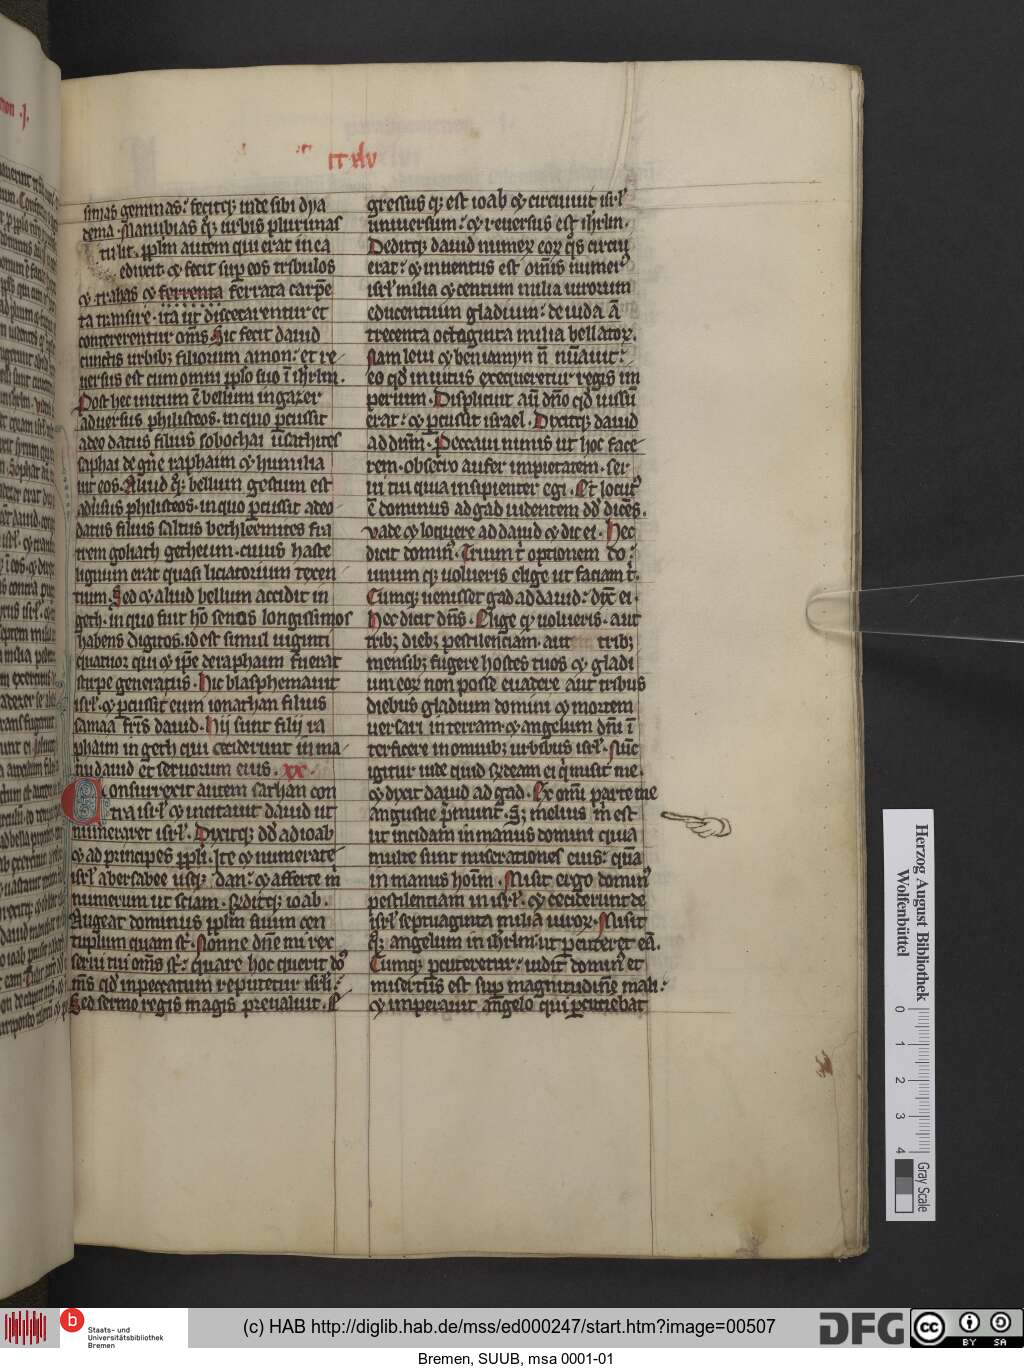 simas gemmas: fecitq; inde sibi dya
dema. Manubias q;q; urbis plurimas
tulit. pplm autem qui erat in ea
eduxit. et fecit sup eos tribulos
et trahas et ferrenta ferrata carpe
ta transire. ita ut discecarentur et
contererentur oms. Sic fecit dauid
cunctis urbibz filiorum amon: et re
uersus est cum omni pplo suo i ihrlm.
Post hec initum e bellum in gazer
aduersus philisteos. in quo pcussit
adeo datus filius sobochai usathites
saphai de gne raphaim et humilia
uit eos. Aliud q;q; bellum gestum est
adusus philisteos. in quo pcussit adeo
datus filius saltus bethleemites fra
trem goliath getheum. cuius haste
lignum erat quasi liciatorium texen
tium. Sed et aliud bellum accidit in
geth. in quo fuit ho senos longissimos
habens digitos. id est simul uiginti
quatuor qui et ipe de raphaim fuerat
stirpe generatus. Hic blasphemauit
isrl. et pcussit eum ionathan filius
samaa fris dauid. Hii sunt filij ra
phaim in geth qui ceciderunt in ma
nu dauid et seruorum eius. xx.
Consurrexit autem sathan con
tra isrl et incitauit dauid ut
numeraret isrl. Dixitq; dd ad ioab
et ad principes ppli. Ite et numerate
isrl a bersabee usq; dan: et afferte m
numerum ut sciam. Rnditq; ioab.
Augeat dominus pplm suum cen
tuplum quam st. Nonne dne mi rex
serui tui oms st: quare hoc querit do
ms qd in peccatum reputetur isrli:
Sed sermo regis magis preualuit. E
gressus q; est ioab et circuiuit isrl
uniuersum: et reuersus est ihrlm.
Deditq; dauid numer eor qs circu
erat: et inuentus est omis numer
isrl milia et centum milia uirorum
educentium gladium: de iuda a
trecenta octoginta milia bellator.
Nam leui et beniamyn n nuauit:
eo qd inuitus exequeretur regis im
perium. Displicuit aut dno qd iussu
erat: et pcussit israel. Dixitq; dauid
ad dnm. Peccaui nimis ut hoc face
rem. obsecro aufer impietatem. ser
ui tui quia insipienter egi. Et locut
e dominus ad gad uidentem dd dices.
Vade et loquere ad dauid et dic ei. Hec
dicit domin. Trium t optionem do:
unum q; uolueris elige ut faciam t.
Cumq; uenisset gad ad dauid: dxt ei.
Hec dicit dns. Elige q uolueris. aut
tribz diebz pestilenciam. aut tribz
mensibz fugere hostes tuos et gladi
um eor non posse euadere aut tribus
diebus gladium domini et mortem
uersari in terram. et angelum dni i
terficere in omnibz urbibus isrl. Nuc
igitur uide quid rndeam ei q misit me.
et dixit dauid ad gad. Ex omi parte me
angustie pmunt. Sz melius m est
ut incidam in manus domini quia
multe sunt miserationes eius: qua
in manus hoim. Misit ergo domin
pestilentiam in isrl. et ceciderunt de
isrl septuaginta milia uiror. Misit
q;q; angelum in ihrlm ut pcuteret ea.
Cumq; pcuteretur: uidit domin et
misertus est sup magnitudine mali:
et imperauit angelo qui pcutiebat
Herzog August Bibliothek
Wolfenbüttel
0 1 2 3 4
Gray Scale
HAB
b Staats- und
Universitätsbibliothek
Bremen
(c) HAB http://diglib.hab.de/mss/ed000247/start.htm?image=00507
DFG
cc BY SA
Bremen, SUUB, msa 0001-01